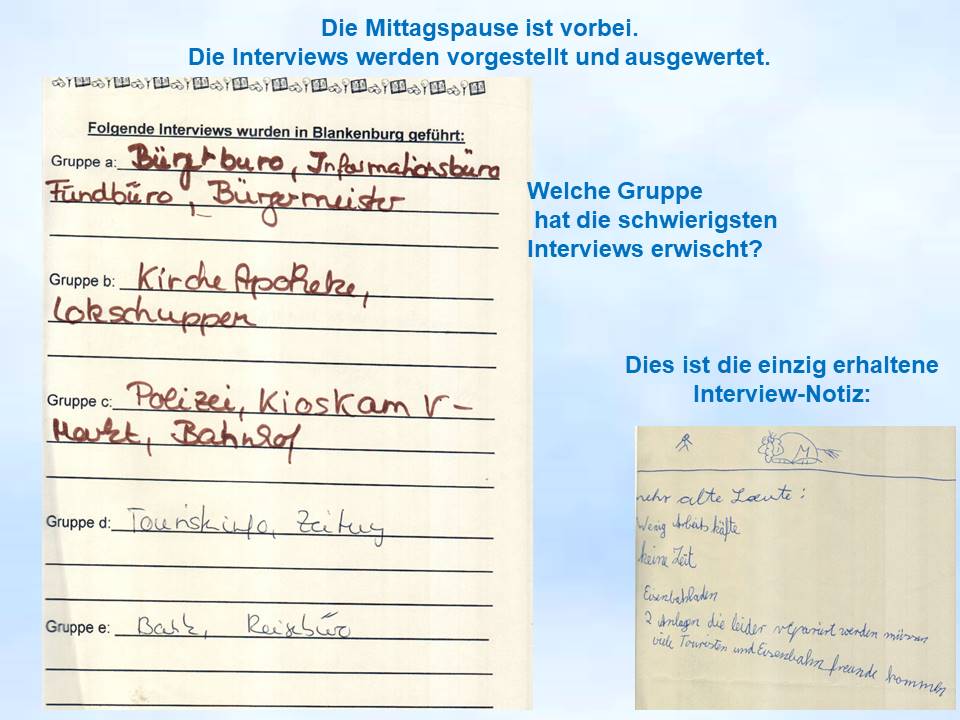 Die Mittagspause ist vorbei.
Die Interviews werden vorgestellt und ausgewertet.
Folgende Interviews wurden in Blankenburg geführt:
Gruppe a: Bürgerbüro, Informationsbüro
Fundbüro, Bürgermeister
Gruppe b: Kirche Apotheke,
Lokschuppen
Gruppe c: Polizei, Kiosk am V-
Markt, Bahnhof
Gruppe d: Touristinfo, Zeitung
Gruppe e: Bank, Reisebüro
Welche Gruppe
hat die schwierigsten
Interviews erwischt?
Dies ist die einzig erhaltene
Interview-Notiz:
M
mehr alte Laute:
Wenig Arbeitskäfte
keine Zeit
Eisenbahladen
2 Anlagen die leider repariert werden müssen
viele Touristen und Eisenbahn freunde kommen